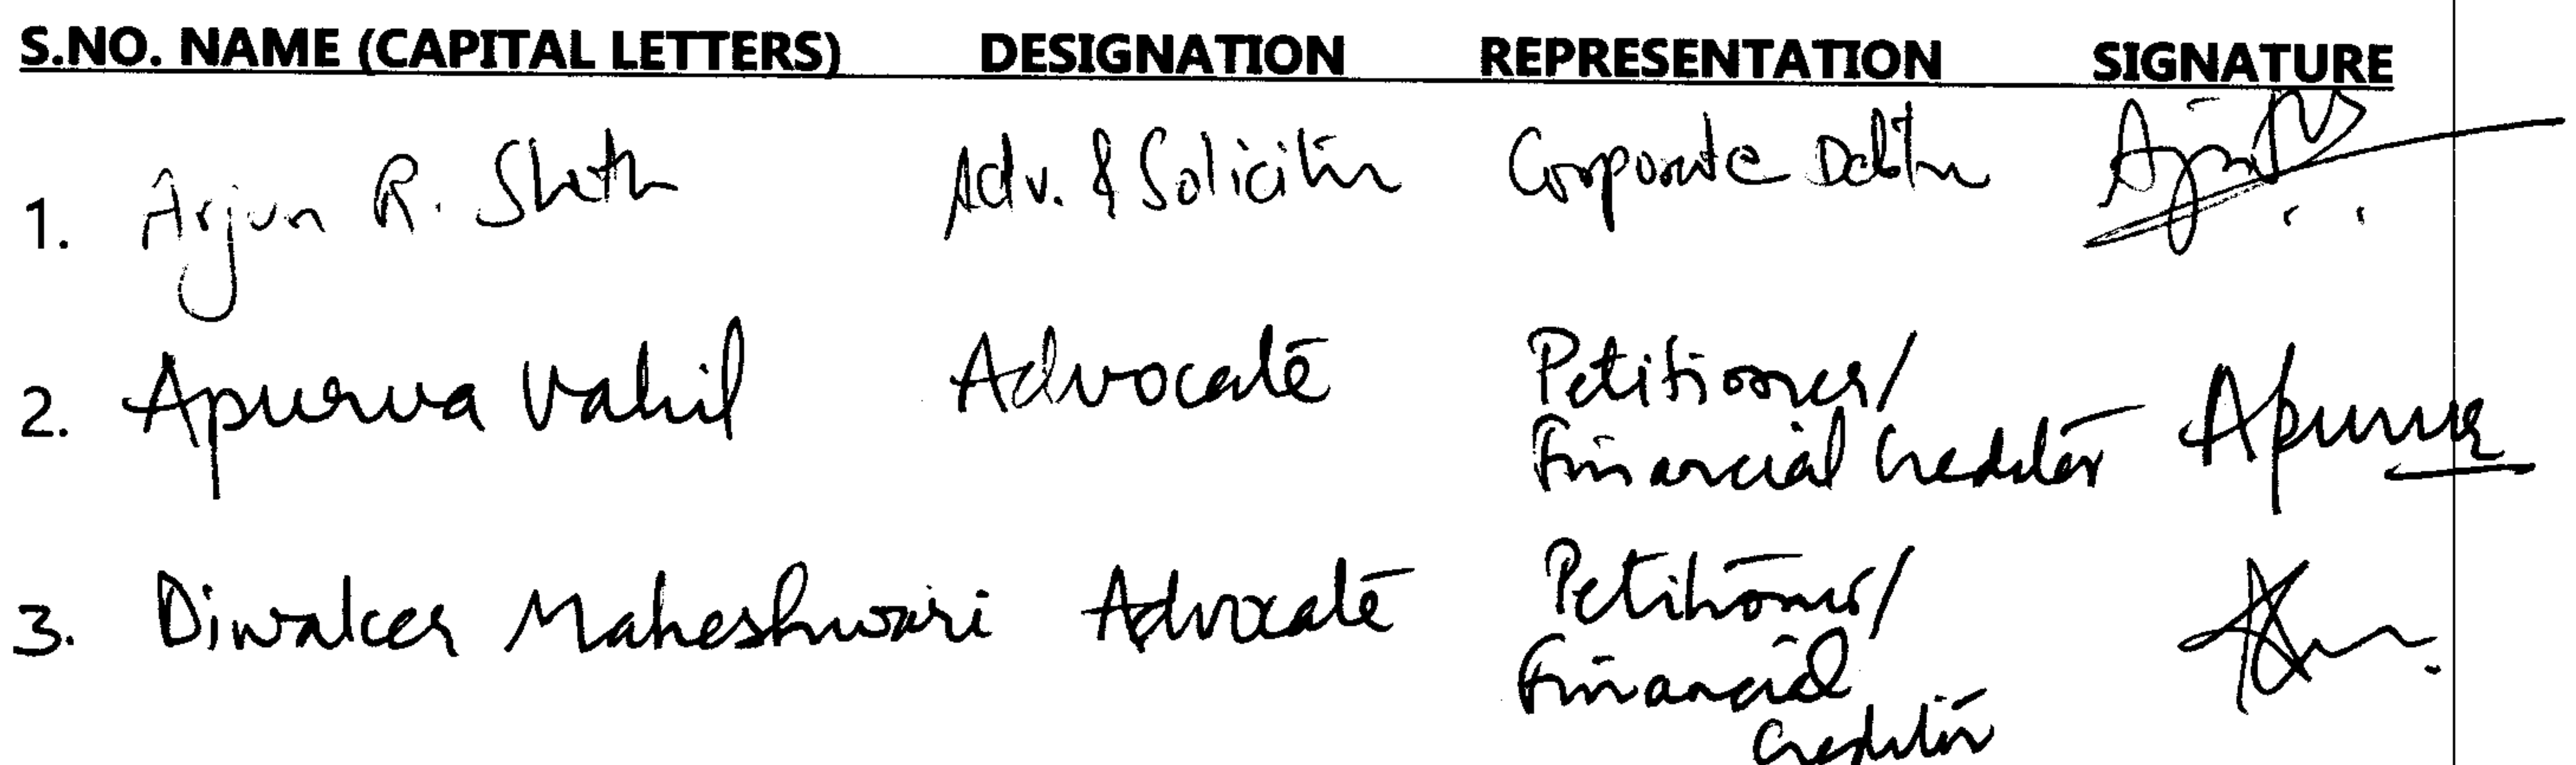 S.NO. NAME (CAPITAL LETTERS) DESIGNATION REPRESENTATION SIGNATURE
1. Arjun R. Sheth Adv. & Solicitor Corporate Debtor
2. Apurva Vakil Advocate Petitioner/
Financial Creditor Apurva
3. Diwaker Maheshwari Advocate Petitioner/
Financial
Creditor